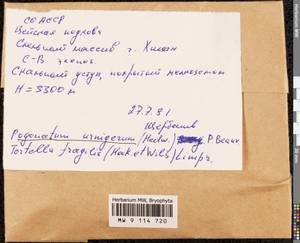 СО АССР
Цейская подкова
Скальный массив г. Хицан
С-В экспоз.
Скальный уступ, покрытый мелкоземом
H = 3300 м
27.7.81
Щербаков
Pogonatum urnigerum /Hedw./ P. Beauv.
Tortella fragilis /Hook. et Wils/ Limpr.
Herbarium MW, Bryophyta
MW 9 114 720
Herbarium MW